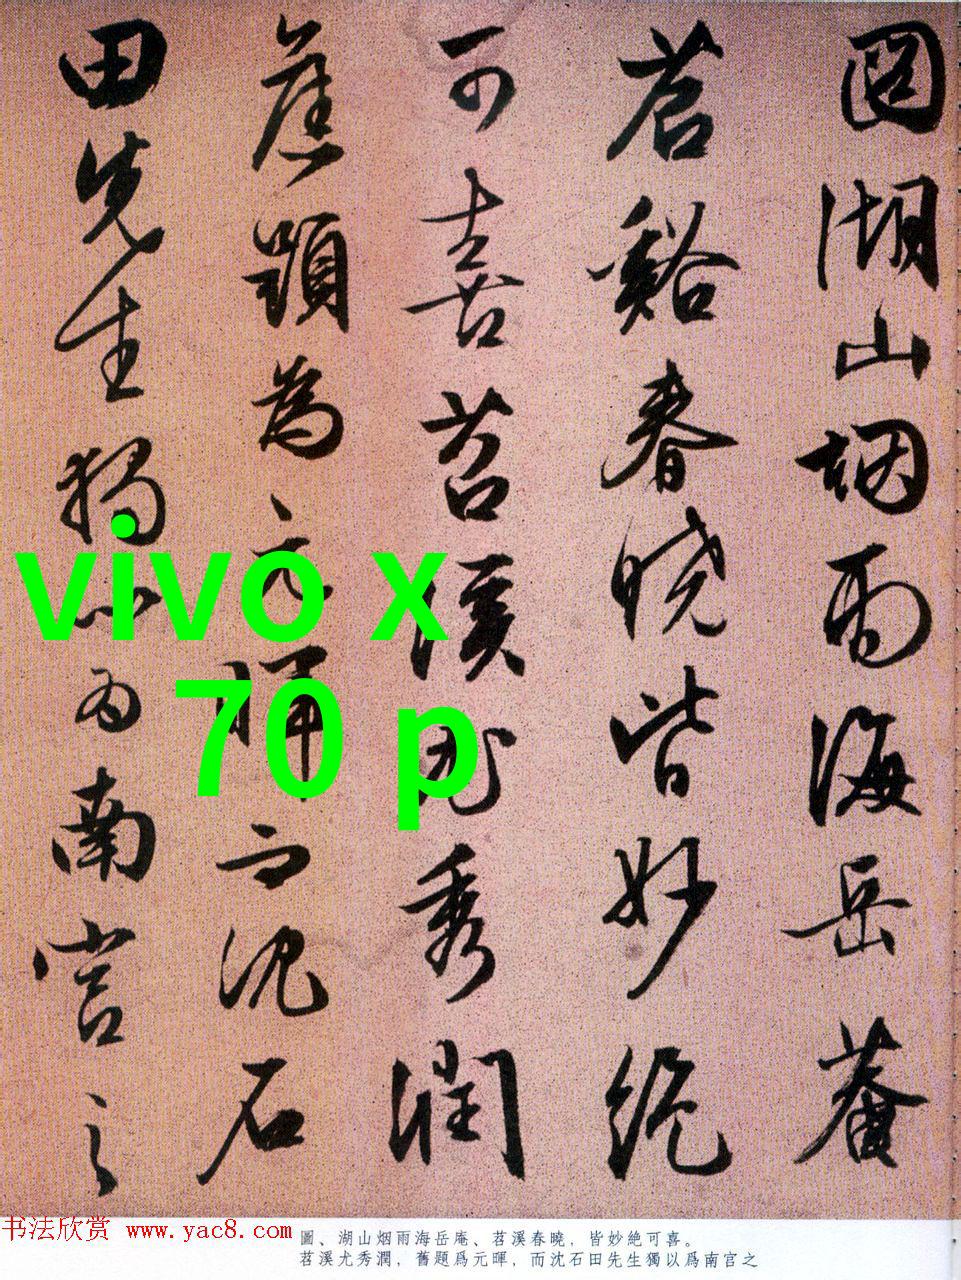 圖湖山烟雨海岳菴
苕谿春曉皆妙絕
可喜苕溪尤秀潤
舊題為元暉而沈石
田先生獨以為南宮之
vivo x
70 p
書法欣赏 www.yac8.com
圖、湖山烟雨海岳庵、苕溪春曉，皆妙絶可喜。
苕溪尤秀潤，舊題爲元暉，而沈石田先生獨以爲南宫之